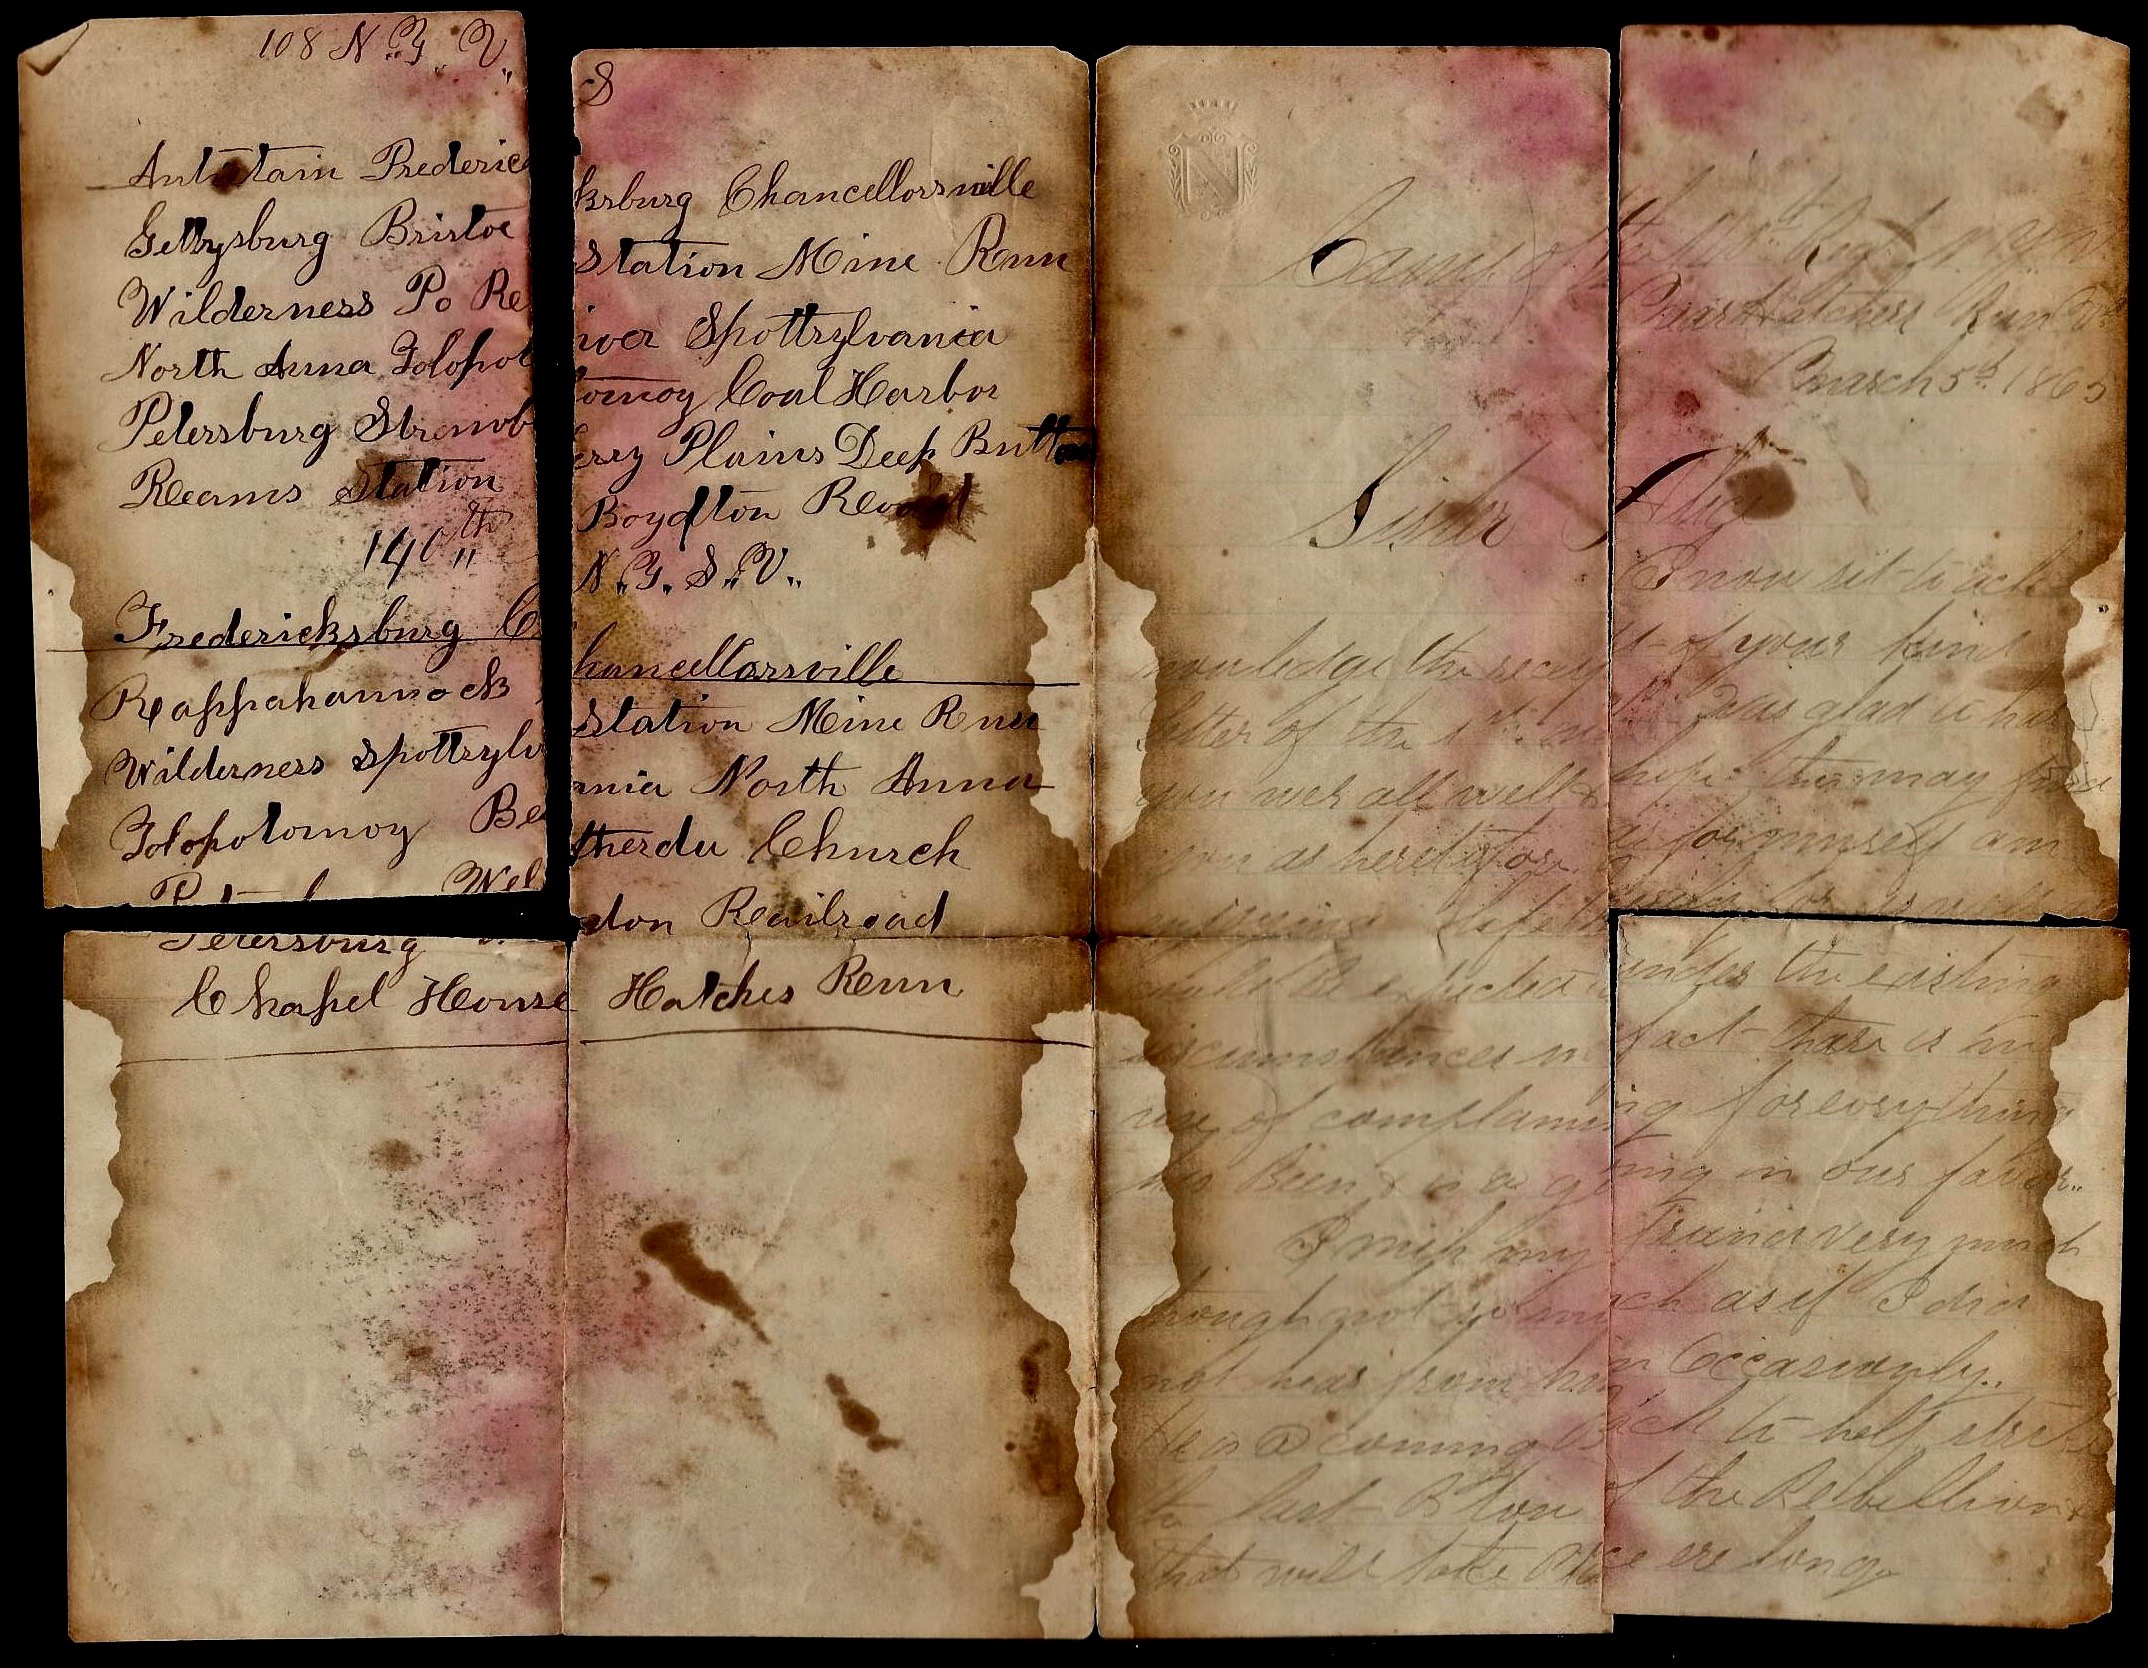 108 N.Y. S V.
Antietain Fredericksburg Chancellorsville
Gettysburg Bristoe Station Mine Run
Wilderness Po River Spottsylvania
North Anna Tolopotomoy Coal Harbor
Petersburg Strawberry Plains Deep Buttom
Reams Station Boydton Road
140th N.Y. S. V.
Fredericksburg Chancellorsville
Rappahannock Station Mine Run
Wilderness Spottsylvania North Anna
Tolopotomoy Bethesda Church
Petersburg Weldon Railroad
Chapel House Hatches Run
Camp of the Regt N.Y.
Near Hatchers Run Va
March 5th 1865
Sister
I now sit to ack
nowledge the receipt of your kind
letter of the Was glad to hear
you wer all well & hope this may find
you as heretofore as for myself am
enjoying life
could be expected under the existing
circumstances in fact thare is no
use of complaining for everything
has Been & is a going in our favor..
I miss my Friend very much
though not so much as if I did
not hear from him Occasionly..
He is a coming Back to help strike
the last Blow of the Rebellion &
that will take place ere long